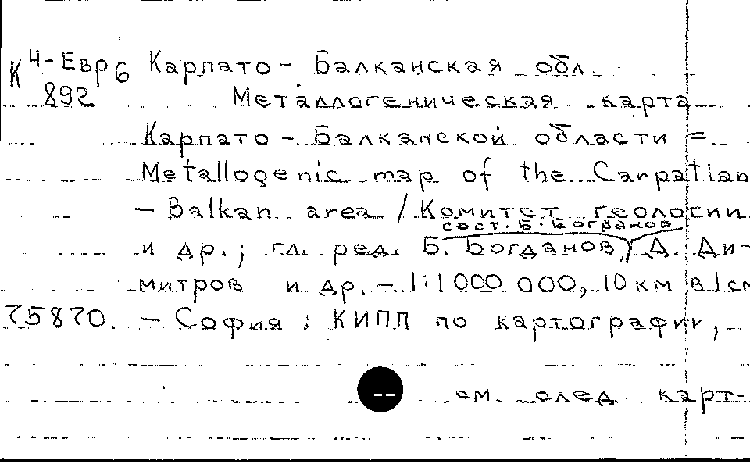 К 4-Евр6 Карпато - Балканская обл.
892 Металлогеническая карта
Карпато - Балканской области =
Metallogenic map of the Carpatian
- Balkan area / Комитет геологии
сост. Б. Богданов
и др. ; гл. ред. Б. Богданов, Д. Ди-
митров и др. - 1:1 000 000, 10 км в 1 см
75870. - София : КИПП по картографии,
см. след карт-